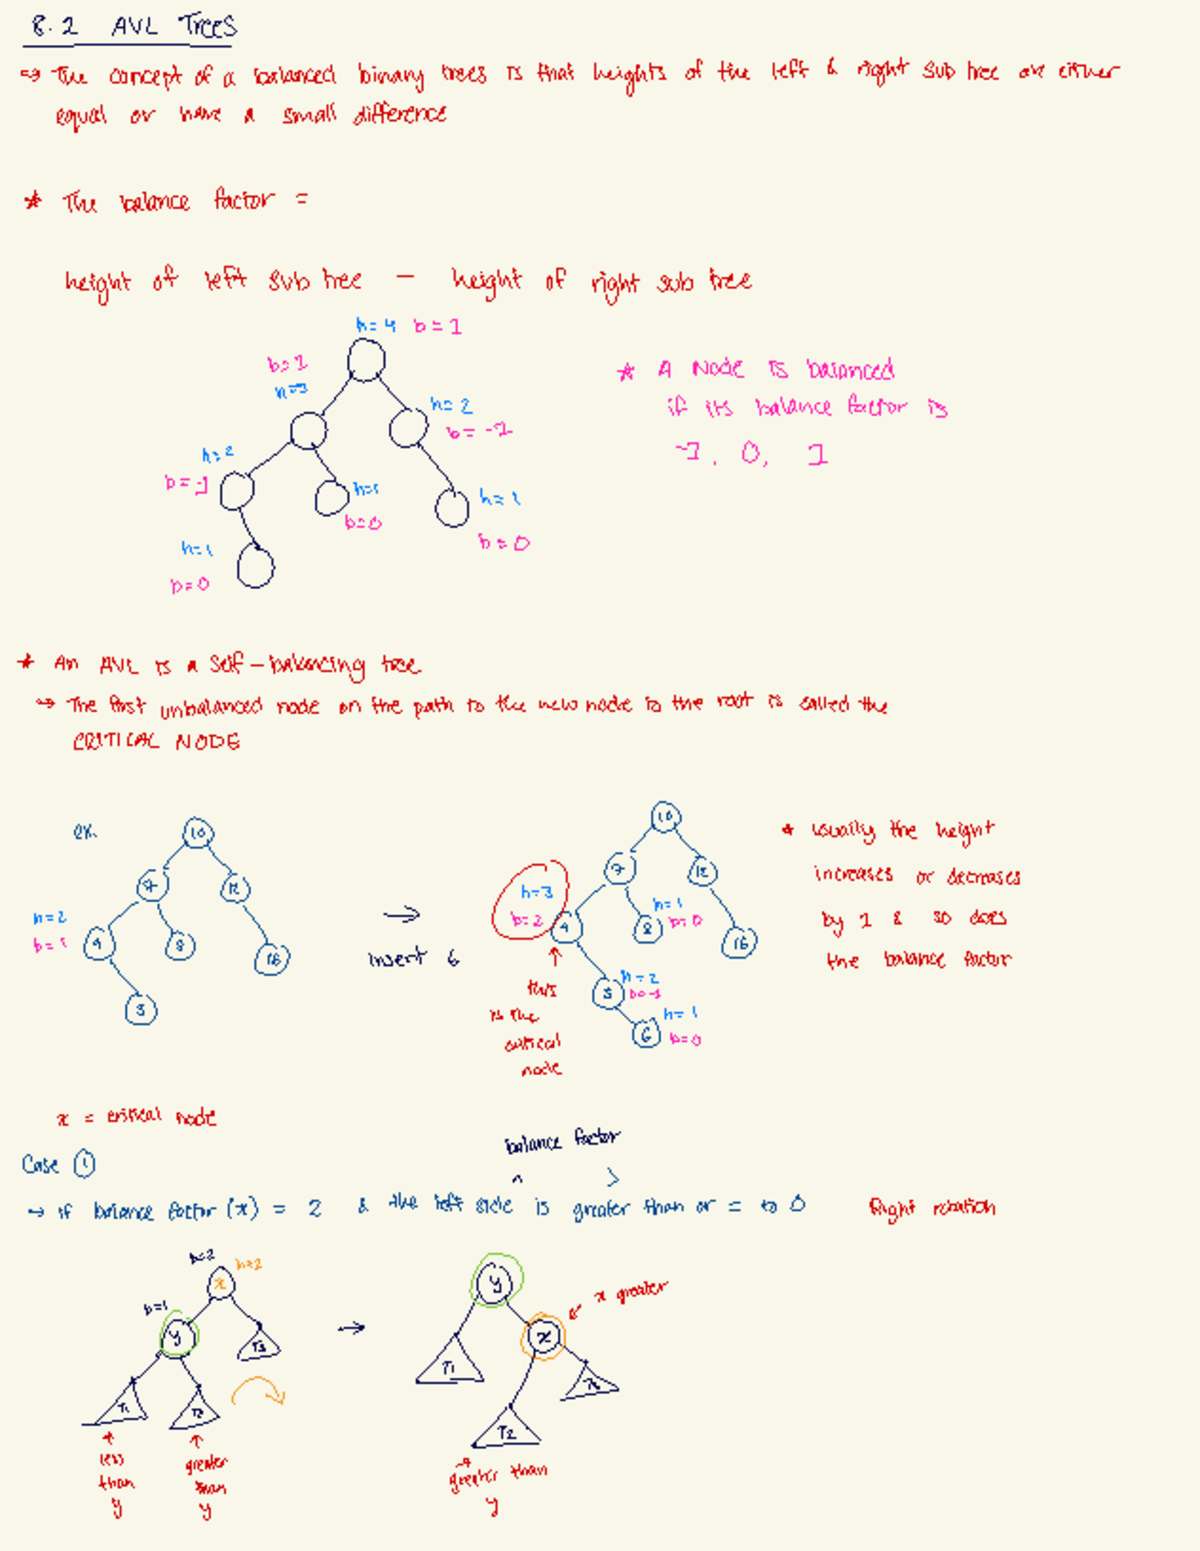 8.2 AVL Trees
⇒ The concept of a balanced binary trees is that heights of the left & right sub tree are either
equal or have a small difference
* The balance factor =
height of left sub tree - height of right sub tree
h=4 b=1
b=1
h=3
h=2
b=-1
h=2
b=-1
h=1
b=0
h=1
b=0
h=1
b=0
* A Node is balanced
if its balance factor is
-1, 0, 1
* An AVL is a self-balancing tree
→ The first unbalanced node on the path to the new node to the root is called the
CRITICAL NODE
ex.
10
7
12
h=2
b=1
4
8
16
5
→
insert 6
10
7
12
h=3
b=2
4
h=1
8
b=0
16
h=2
5
b=-1
h=1
6
b=0
↑
this
is the
critical
node
* usually the height
increases or decreases
by 1 & so does
the balance factor
x = critical node
Case ①
balance factor
→ if balance factor (x) = 2 & the left side is greater than or = to 0 Right rotation
b=2
h=2
x
b=1
y
T3
T1
T2
↑
less
than
y
↑
greater
than
y
→
y
x greater
x
T1
T2
greater than
y